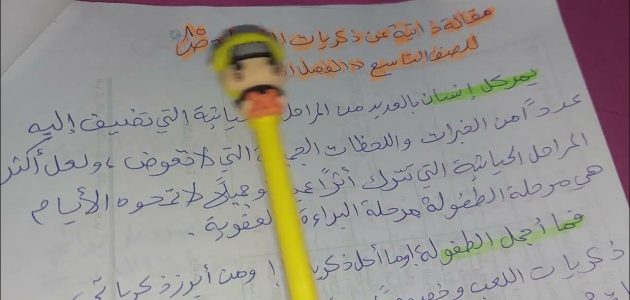 مقالة ذاتية عن ذكريات
للصف التاسع الفصل
يمر كل إنسان بالعديد من المراحل الحياتية التي تضيف إليه
عدداً من الخبرات واللحظات التي لا تعوض، ولعل أكثر
المراحل الحياتية التي تترك أثراً وجميلاً لا تمحوه الأيام
هي مرحلة الطفولة مرحلة البراءة العفوية.
فما أجمل الطفولة! وما أحلى ومن أبرز ذكرياتي
ذكريات اللعب